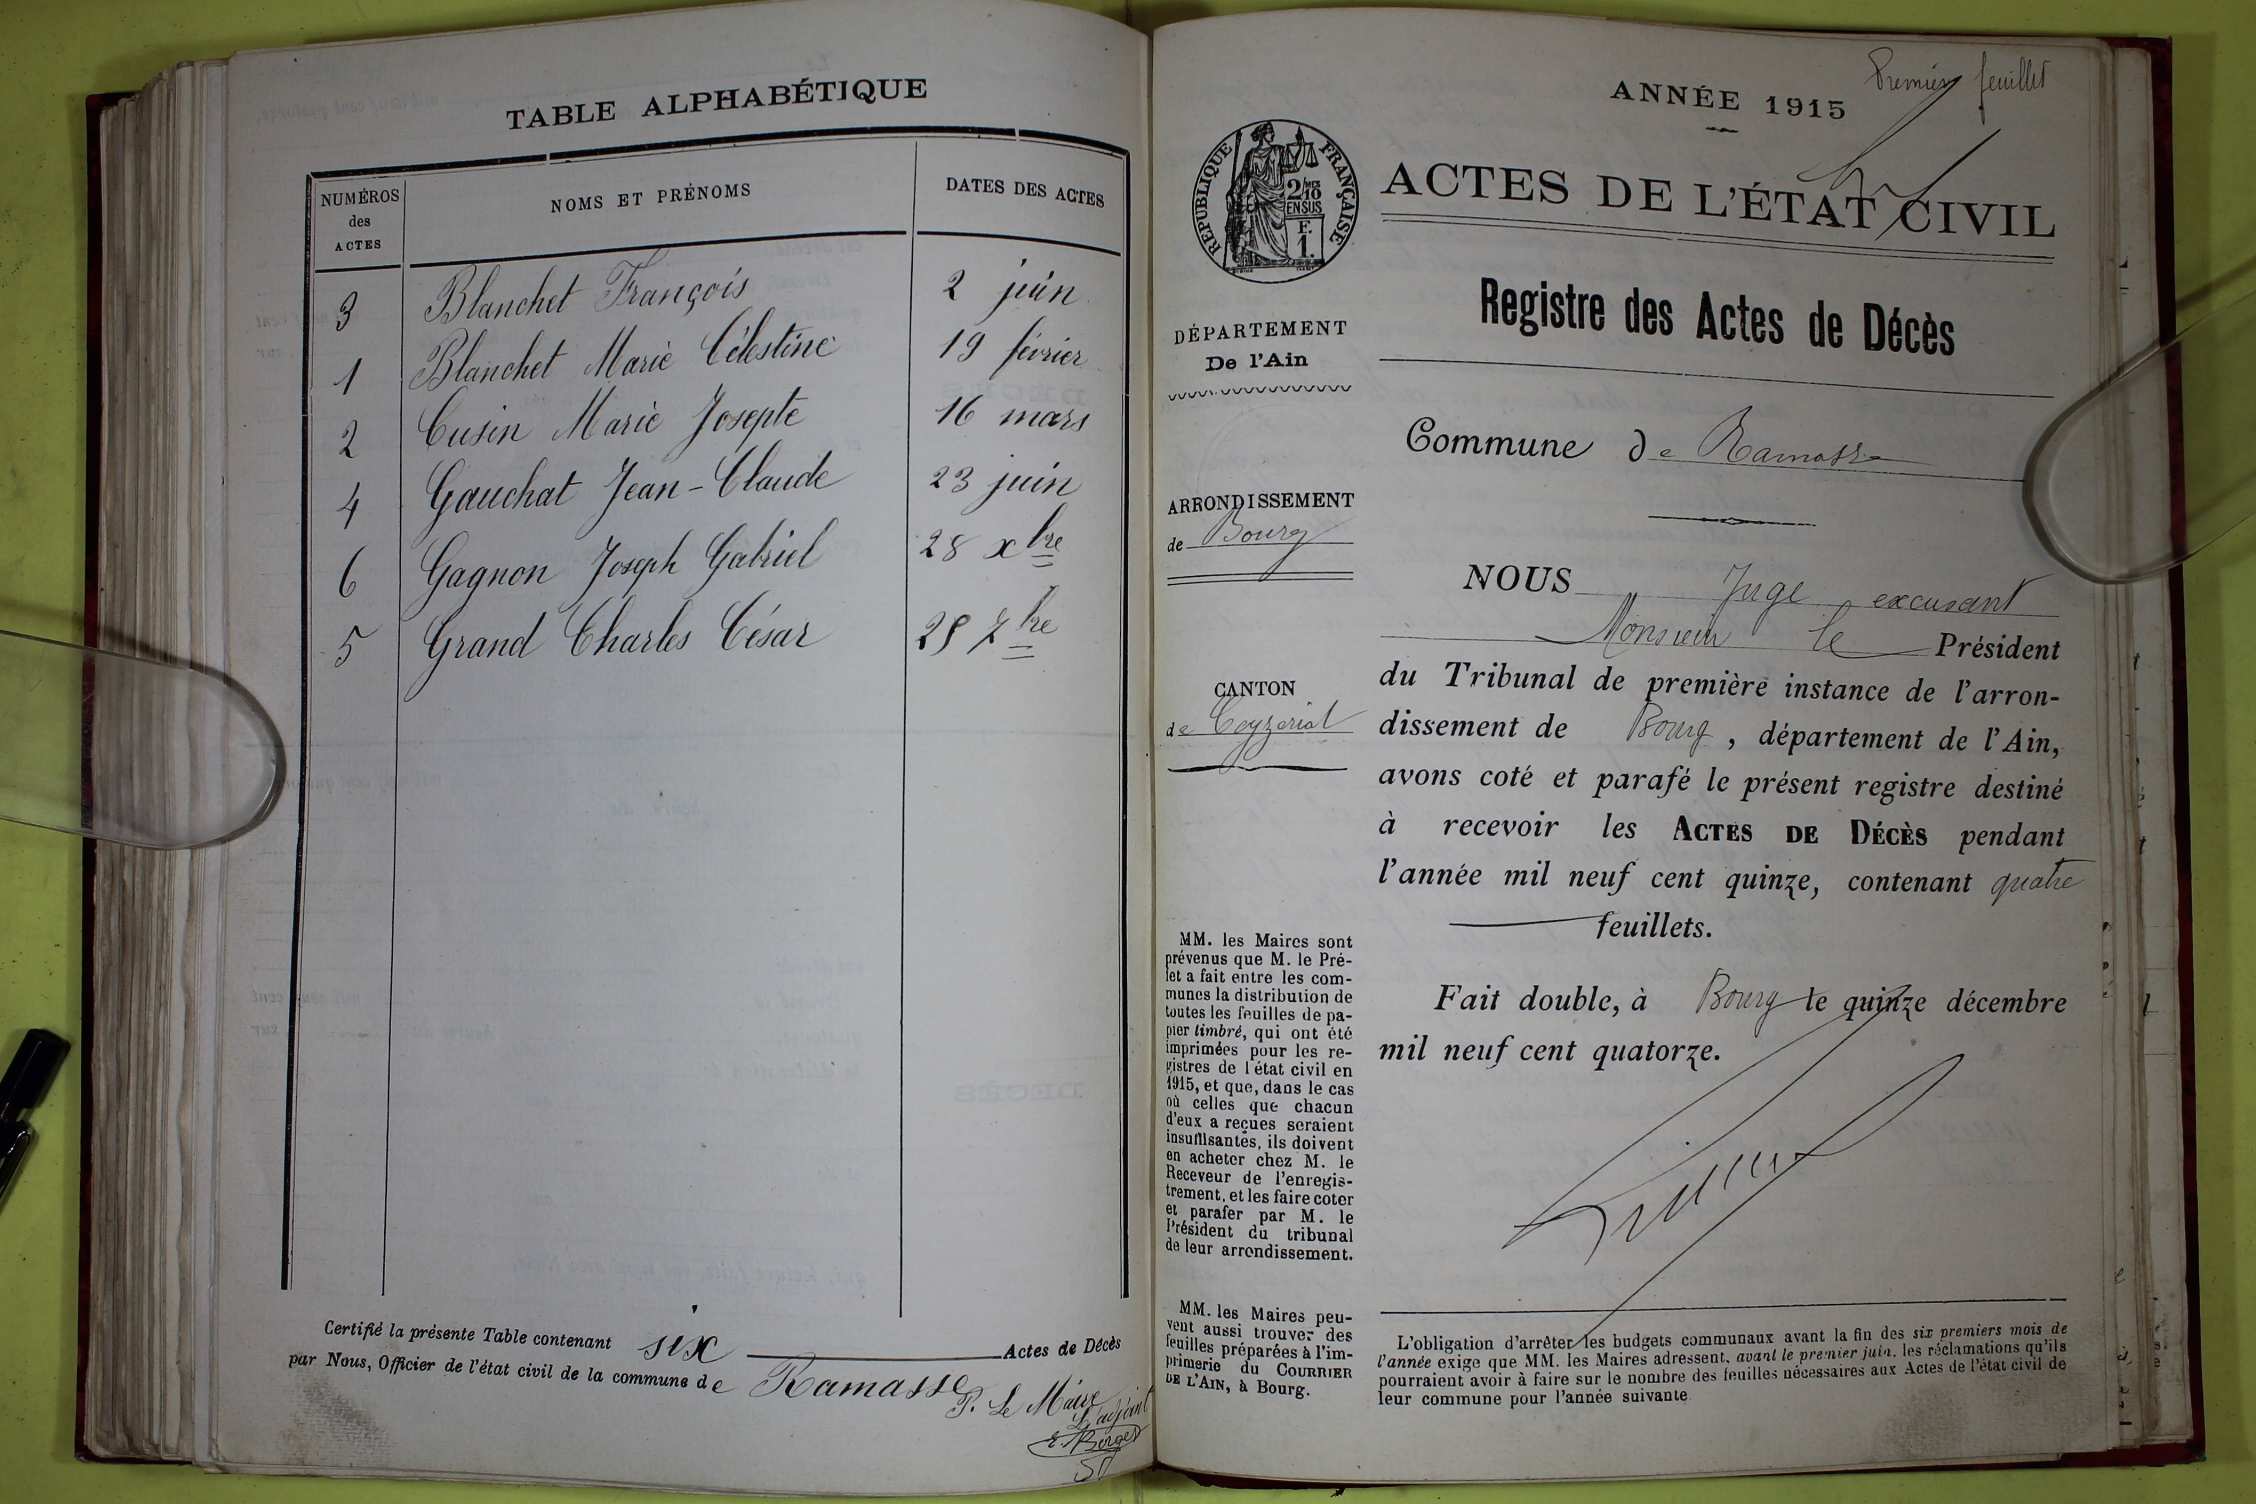 TABLE ALPHABÉTIQUE
NUMÉROS
des
ACTES
NOMS ET PRÉNOMS
DATES DES ACTES
3 Blanchet François 2 juin
1 Blanchet Marie Célestine 19 février
2 Cusin Marie Josepte 16 mars
4 Gauchat Jean-Claude 23 juin
6 Gagnon Joseph Gabriel 28 xbre
5 Grand Charles César 7bre
Certifié la présente Table contenant six Actes de Décès
par Nous, Officier de l'état civil de la commune de Ramasse
P. Le Maire
L'adjoint
Premier feuillet
ANNÉE 1915
RÉPUBLIQUE FRANÇAISE
2/10
MES
EN SUS
F.
1.
ACTES DE L'ÉTAT CIVIL
Registre des Actes de Décès
DÉPARTEMENT
De l'Ain
Commune de Ramasse
ARRONDISSEMENT
de Bourg
CANTON
de Ceyzeriat
NOUS Juge excusant
Monsieur le Président
du Tribunal de première instance de l'arron-
dissement de Bourg, département de l'Ain,
avons coté et parafé le présent registre destiné
à recevoir les ACTES DE DÉCÈS pendant
l'année mil neuf cent quinze, contenant quatre
feuillets.
Fait double, à Bourg le quinze décembre
mil neuf cent quatorze.
MM. les Maires sont
prévenus que M. le Pré-
fet a fait entre les com-
munes la distribution de
toutes les feuilles de pa-
pier timbré, qui ont été
imprimées pour les re-
gistres de l'état civil en
1915, et que, dans le cas
où celles que chacun
d'eux a reçues seraient
insuffisantes, ils doivent
en acheter chez M. le
Receveur de l'enregis-
trement, et les faire coter
et parafer par M. le
Président du tribunal
de leur arrondissement.
MM. les Maires peu-
vent aussi trouver des
feuilles préparées à l'im-
primerie du COURRIER
DE L'AIN, à Bourg.
L'obligation d'arrêter les budgets communaux avant la fin des six premiers mois de
l'année exige que MM. les Maires adressent, avant le premier juin, les réclamations qu'ils
pourraient avoir à faire sur le nombre des feuilles nécessaires aux Actes de l'état civil de
leur commune pour l'année suivante